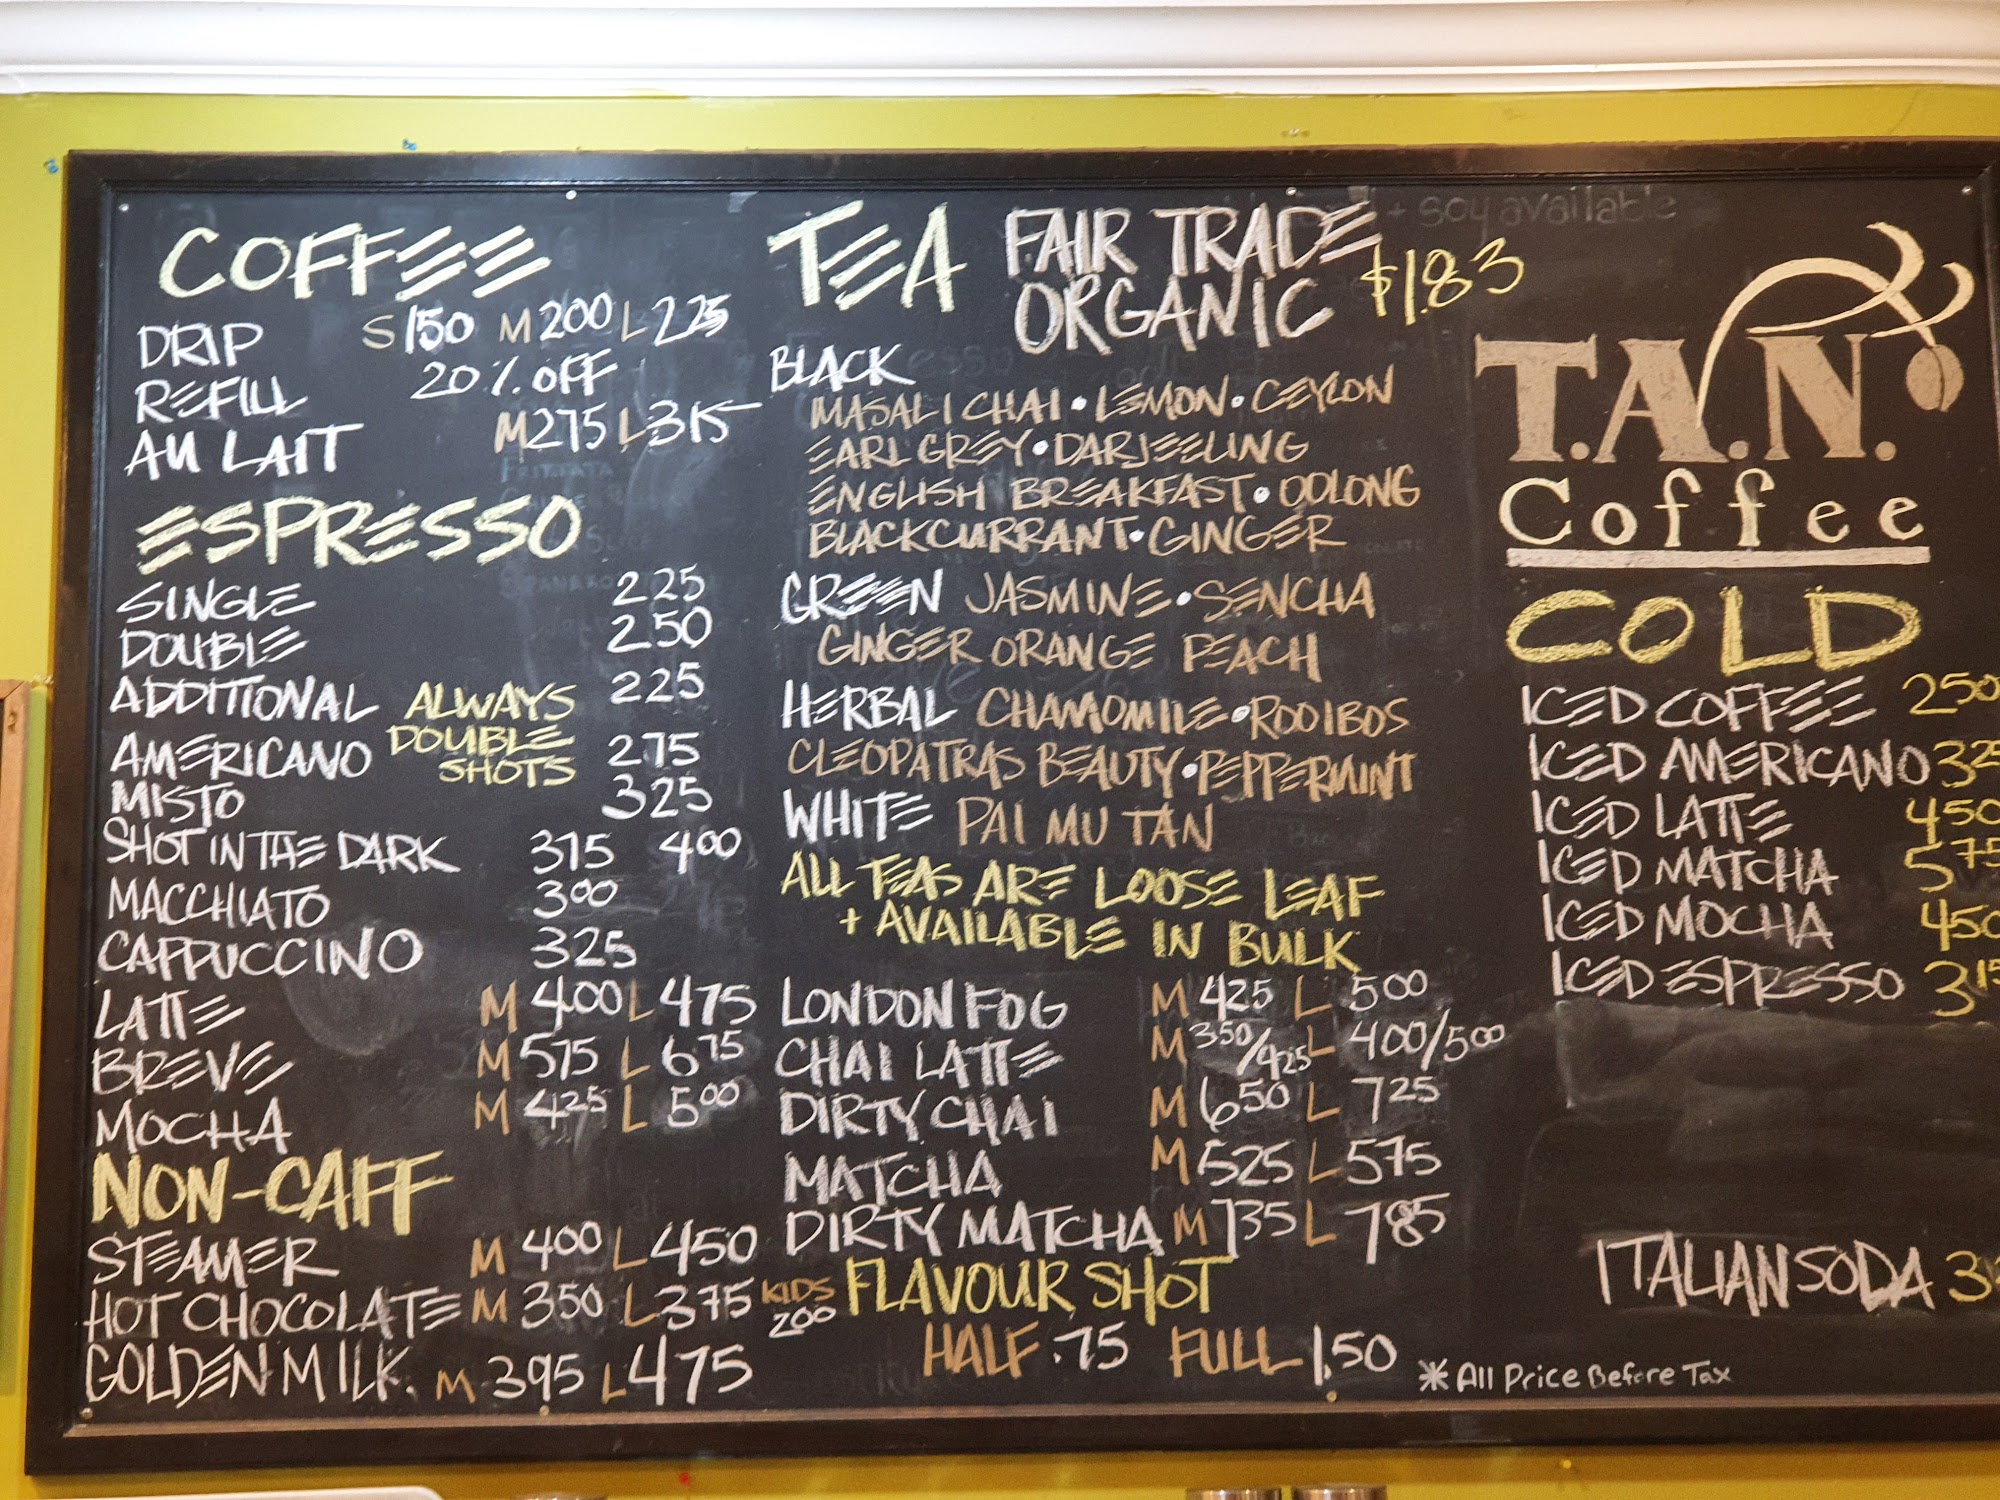 COFFEE
DRIP S 150 M 200 L 225
REFILL 20% OFF
AU LAIT M 275 L 315
ESPRESSO
SINGLE 225
DOUBLE 250
ADDITIONAL 225
ALWAYS
DOUBLE
SHOTS
AMERICANO 275
MISTO 325
SHOT IN THE DARK 375 400
MACCHIATO 300
CAPPUCCINO 325
LATTE M 400 L 475
BREVE M 575 L 675
MOCHA M 425 L 500
NON-CAFF
STEAMER M 400 L 450
HOT CHOCOLATE M 350 L 375 KIDS 200
GOLDEN MILK. M 395 L 475
TEA FAIR TRADE
ORGANIC $1.83
BLACK
MASALI CHAI • LEMON • CEYLON
EARL GREY • DARJEELING
ENGLISH BREAKFAST • OOLONG
BLACKCURRANT • GINGER
GREEN JASMINE • SENCHA
GINGER ORANGE PEACH
HERBAL CHAMOMILE • ROOIBOS
CLEOPATRAS BEAUTY • PEPPERMINT
WHITE PAI MU TAN
ALL TEAS ARE LOOSE LEAF
+ AVAILABLE IN BULK
LONDON FOG M 425 L 500
CHAI LATTE M 350/425 L 400/500
DIRTY CHAI M 650 L 725
MATCHA M 525 L 575
DIRTY MATCHA M 735 L 785
FLAVOUR SHOT
HALF .75 FULL 1.50
+ soy available
T.A.N.
Coffee
COLD
ICED COFFEE 250
ICED AMERICANO 325
ICED LATTE 450
ICED MATCHA 575
ICED MOCHA 450
ICED ESPRESSO 315
ITALIAN SODA
* All Price Before Tax